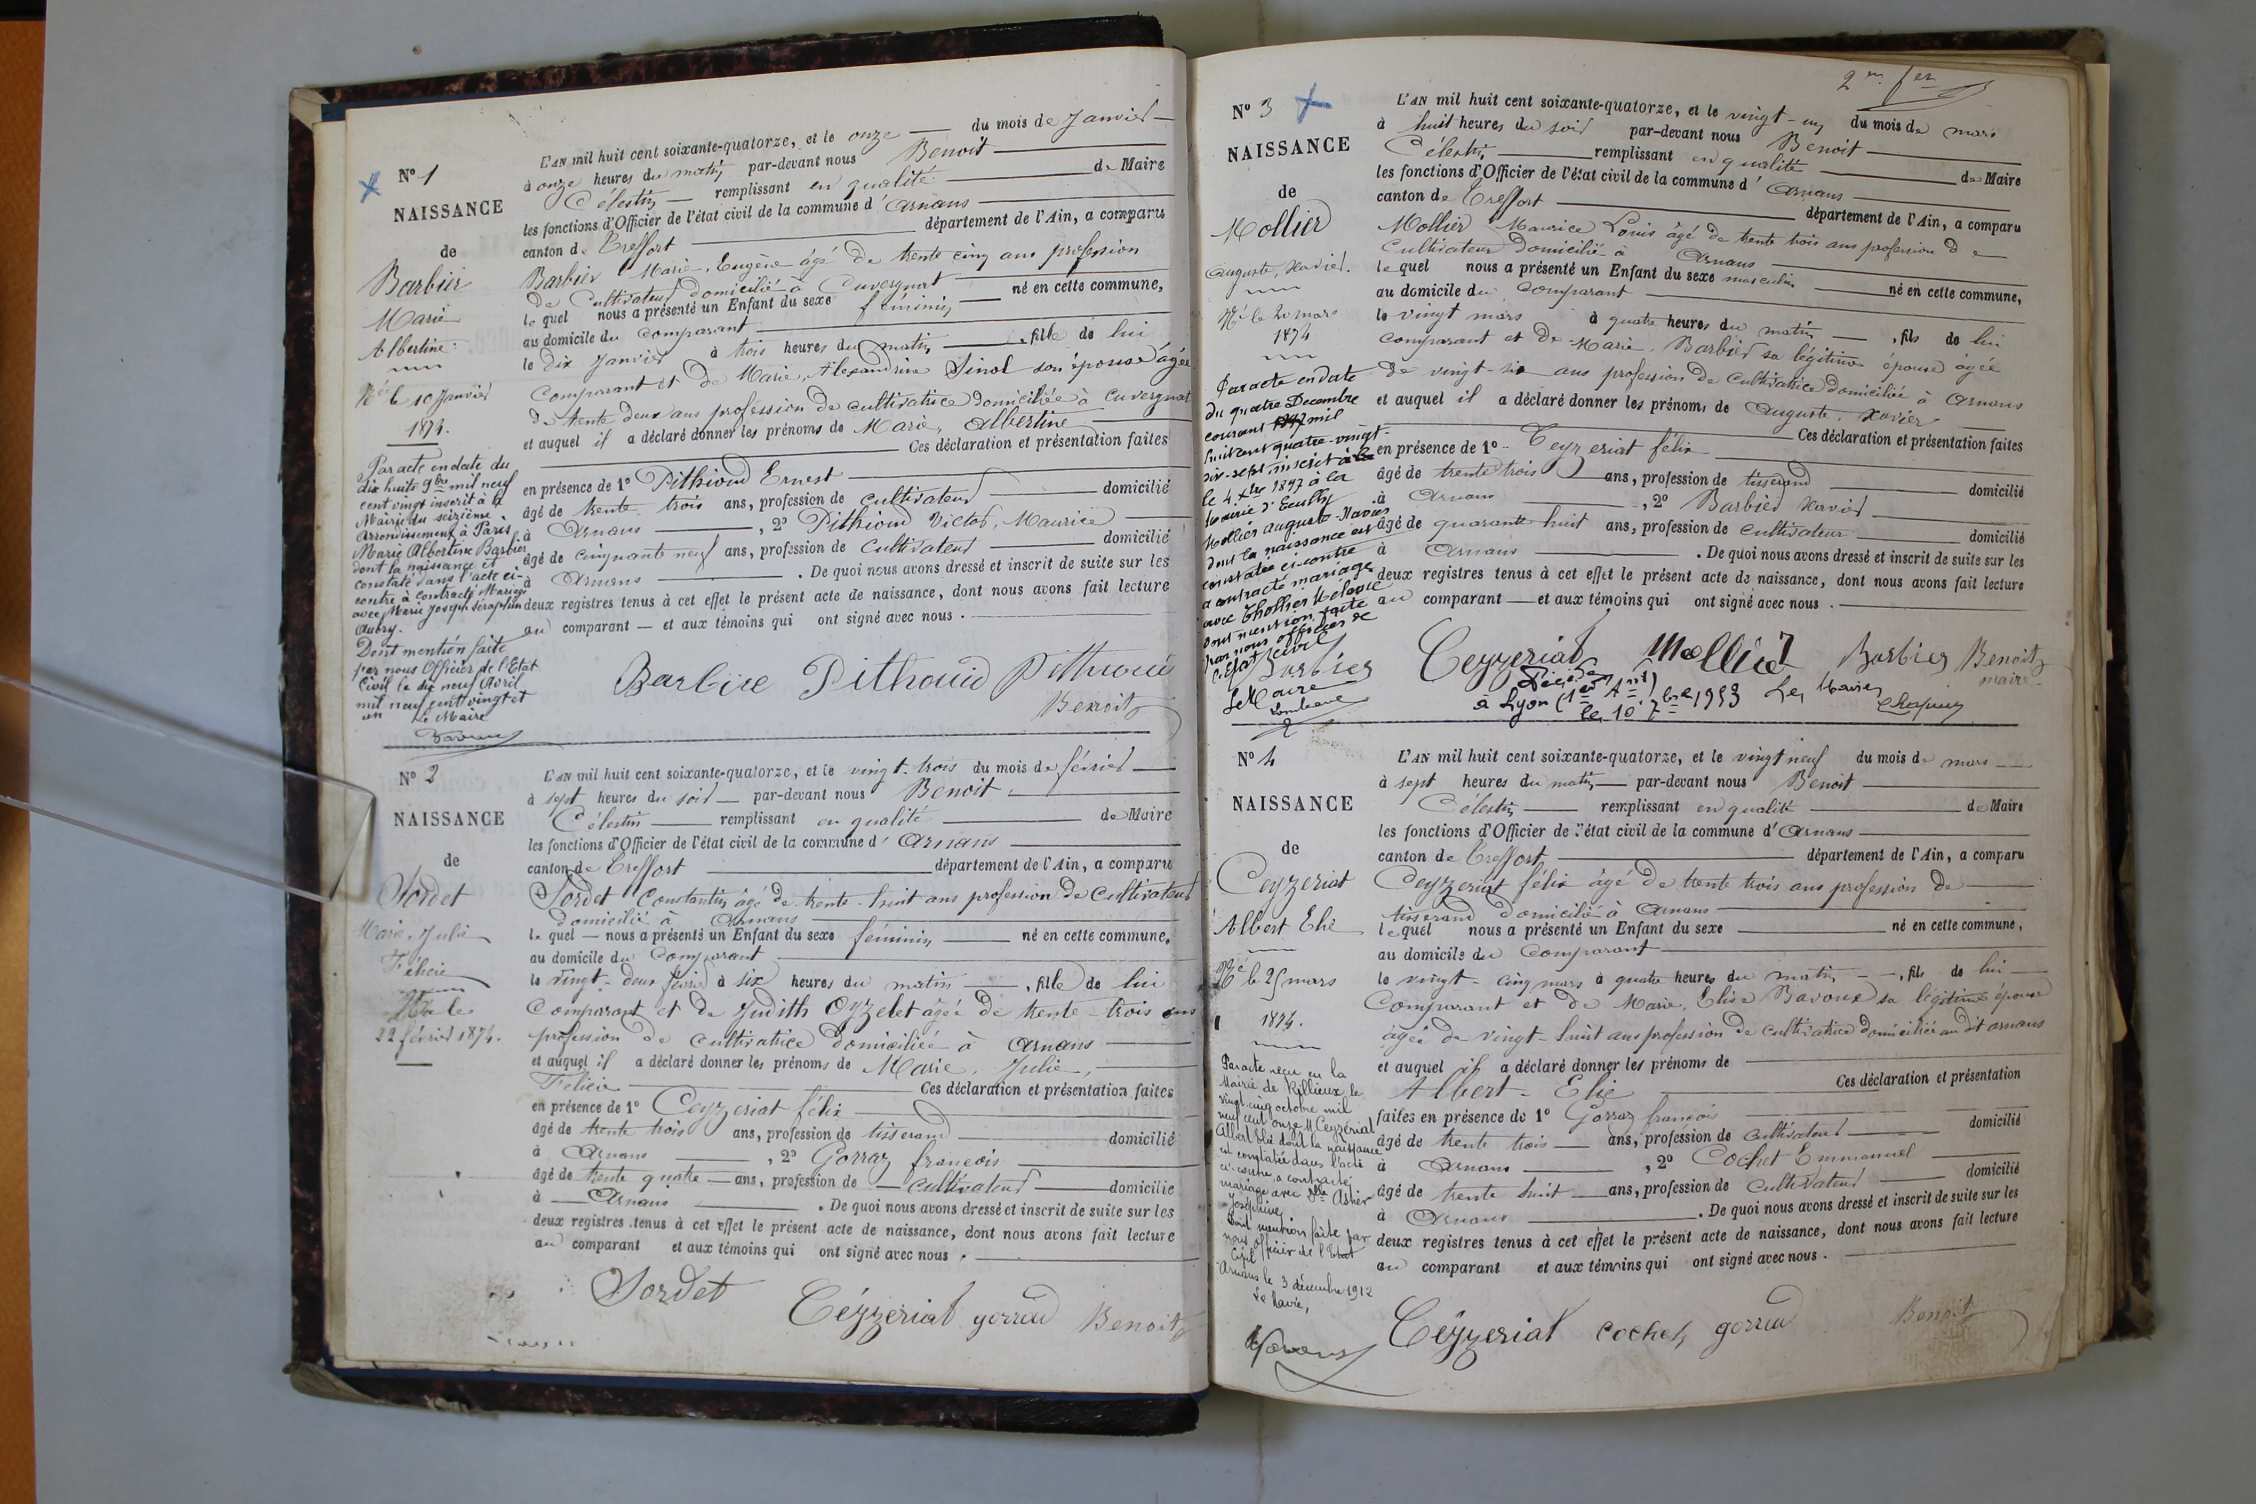 N° 1
NAISSANCE
de
Barbier
Marie
Albertine
Née le 10 Janvier
1874.
Par acte en date du
dix huit 9bre mil neuf
cent vingt inscrit à la
Mairie du seizième
Arrondissement à Paris,
Marie Albertine Barbier
dont la naissance est
constaté dans l'acte ci-
contre à contracté Mariage
avec Marie Joseph Séraphin
Aubry.
Dont mention faite
par nous Officier de l'Etat
Civil le dix neuf Avril
mil neuf cent vingt et
un Le Maire
L'AN mil huit cent soixante-quatorze, et le onze du mois de Janvier
à onze heures du matin par-devant nous Benoit
Célestin remplissant en qualité de Maire
les fonctions d'Officier de l'état civil de la commune d'Arnans
canton de Treffort département de l'Ain, a comparu
Barbier Marie, Eugène âgé de trente cinq ans profession
de Cultivateur domicilié à Cuvergnat
lequel nous a présenté un Enfant du sexe féminin né en cette commune,
au domicile du comparant
le dix Janvier à trois heures du matin, fille de lui
Comparant et de Marie, Alexandrine Sinol son épouse âgée
de trente deux ans profession de cultivatrice domiciliée à Cuvergnat
et auquel il a déclaré donner les prénoms de Marie, Albertine
Ces déclaration et présentation faites
en présence de 1° Pithioud Ernest
âgé de trente trois ans, profession de cultivateur domicilié
à Arnans, 2° Pithioud Victor, Maurice
âgé de cinquante neuf ans, profession de Cultivateur domicilié
à Arnans. De quoi nous avons dressé et inscrit de suite sur les
deux registres tenus à cet effet le présent acte de naissance, dont nous avons fait lecture
au comparant et aux témoins qui ont signé avec nous.
Barbier Pithioud Pithioud
Benoit
N° 2
NAISSANCE
de
Sordet
Marie, Julie
Félicie
Née le
22 février 1874.
L'AN mil huit cent soixante-quatorze, et le vingt-trois du mois de février
à sept heures du soir par-devant nous Benoit
Célestin remplissant en qualité de Maire
les fonctions d'Officier de l'état civil de la commune d'Arnans
canton de Treffort département de l'Ain, a comparu
Sordet Constantin âgé de trente-huit ans profession de Cultivateur
domicilié à Arnans
lequel nous a présenté un Enfant du sexe féminin né en cette commune,
au domicile du Comparant
le vingt-deux février à six heures du matin, fille de lui
Comparant et de Judith Oyzelet âgée de trente-trois ans
profession de cultivatrice domiciliée à Arnans
et auquel il a déclaré donner les prénoms de Marie, Julie,
Félicie Ces déclaration et présentation faites
en présence de 1° Ceyzeriat félix
âgé de trente trois ans, profession de tisserand domicilié
à Arnans, 2° Gorraz françois
âgé de trente quatre ans, profession de cultivateur domicilié
à Arnans. De quoi nous avons dressé et inscrit de suite sur les
deux registres tenus à cet effet le présent acte de naissance, dont nous avons fait lecture
au comparant et aux témoins qui ont signé avec nous.
Sordet
Ceyzeriat gorraz Benoit
2me fer
N° 3
NAISSANCE
de
Mollier
Auguste, Xavier.
Né le 20 mars
1874
Par acte en date
du quatre Decembre
courant mil
huit cent quatre-vingt-
dix-sept inscrit
le 4 Xbre 1897 à la
Mairie d'Ecully
Mollier Auguste-Xavier
dont la naissance est
constatée ci-contre
a contracté mariage
avec Thollier Mélanie
dont mention faite
par nous officier de
l'Etat civil
Le Maire
L'AN mil huit cent soixante-quatorze, et le vingt-un du mois de mars
à huit heures du soir par-devant nous Benoit
Célestin remplissant en qualité de Maire
les fonctions d'Officier de l'état civil de la commune d'Arnans
canton de Treffort département de l'Ain, a comparu
Mollier Maurice Louis âgé de trente trois ans profession de
Cultivateur domicilié à Arnans
lequel nous a présenté un Enfant du sexe masculin né en cette commune,
au domicile du Comparant
le vingt mars à quatre heures du matin, fils de lui
Comparant et de Marie, Barbier sa légitime épouse âgée
de vingt-six ans profession de Cultivatrice domiciliée à Arnans
et auquel il a déclaré donner les prénoms de Auguste, Xavier
Ces déclaration et présentation faites
en présence de 1° Ceyzeriat félix
âgé de trente trois ans, profession de tisserand domicilié
à Arnans, 2° Barbier Xavier
âgé de quarante huit ans, profession de Cultivateur domicilié
à Arnans. De quoi nous avons dressé et inscrit de suite sur les
deux registres tenus à cet effet le présent acte de naissance, dont nous avons fait lecture
au comparant et aux témoins qui ont signé avec nous.
Ceyzeriat Mollier Barbier Benoit
maire
Décédé
à Lyon (1er Art)
le 10 7bre 1953 Le Maire
N° 4
NAISSANCE
de
Ceyzeriat
Albert Elie
Né le 25 mars
1874.
Par acte reçu en la
Mairie de Rillieux le
vingt cinq octobre mil
neuf cent onze M. Ceyzériat
Albert Elie dont la naissance
est constatée dans l'acte
ci-contre a contracté
mariage avec Mlle Asnier
Joséphine.
Dont mention faite par
nous officier de l'Etat
Civil
Arnans le 3 décembre 1912
Le Maire,
L'AN mil huit cent soixante-quatorze, et le vingt neuf du mois de mars
à sept heures du matin par-devant nous Benoit
Célestin remplissant en qualité de Maire
les fonctions d'Officier de l'état civil de la commune d'Arnans
canton de Treffort département de l'Ain, a comparu
Ceyzeriat félix âgé de trente trois ans profession de
tisserand domicilié à Arnans
lequel nous a présenté un Enfant du sexe né en cette commune,
au domicile du Comparant
le vingt-cinq mars à quatre heures du matin, fils de lui
Comparant et de Marie, Elise Bavoux sa légitime épouse
âgée de vingt-huit ans profession de cultivatrice domiciliée au dit arnans
et auquel il a déclaré donner les prénoms de
Albert-Elie Ces déclaration et présentation
faites en présence de 1° Gorraz françois
âgé de trente trois ans, profession de cultivateur domicilié
à Arnans, 2° Cochet Emmanuel
âgé de trente huit ans, profession de Cultivateur domicilié
à Arnans. De quoi nous avons dressé et inscrit de suite sur les
deux registres tenus à cet effet le présent acte de naissance, dont nous avons fait lecture
au comparant et aux témoins qui ont signé avec nous.
Ceyzeriat cochet gorraz Benoit